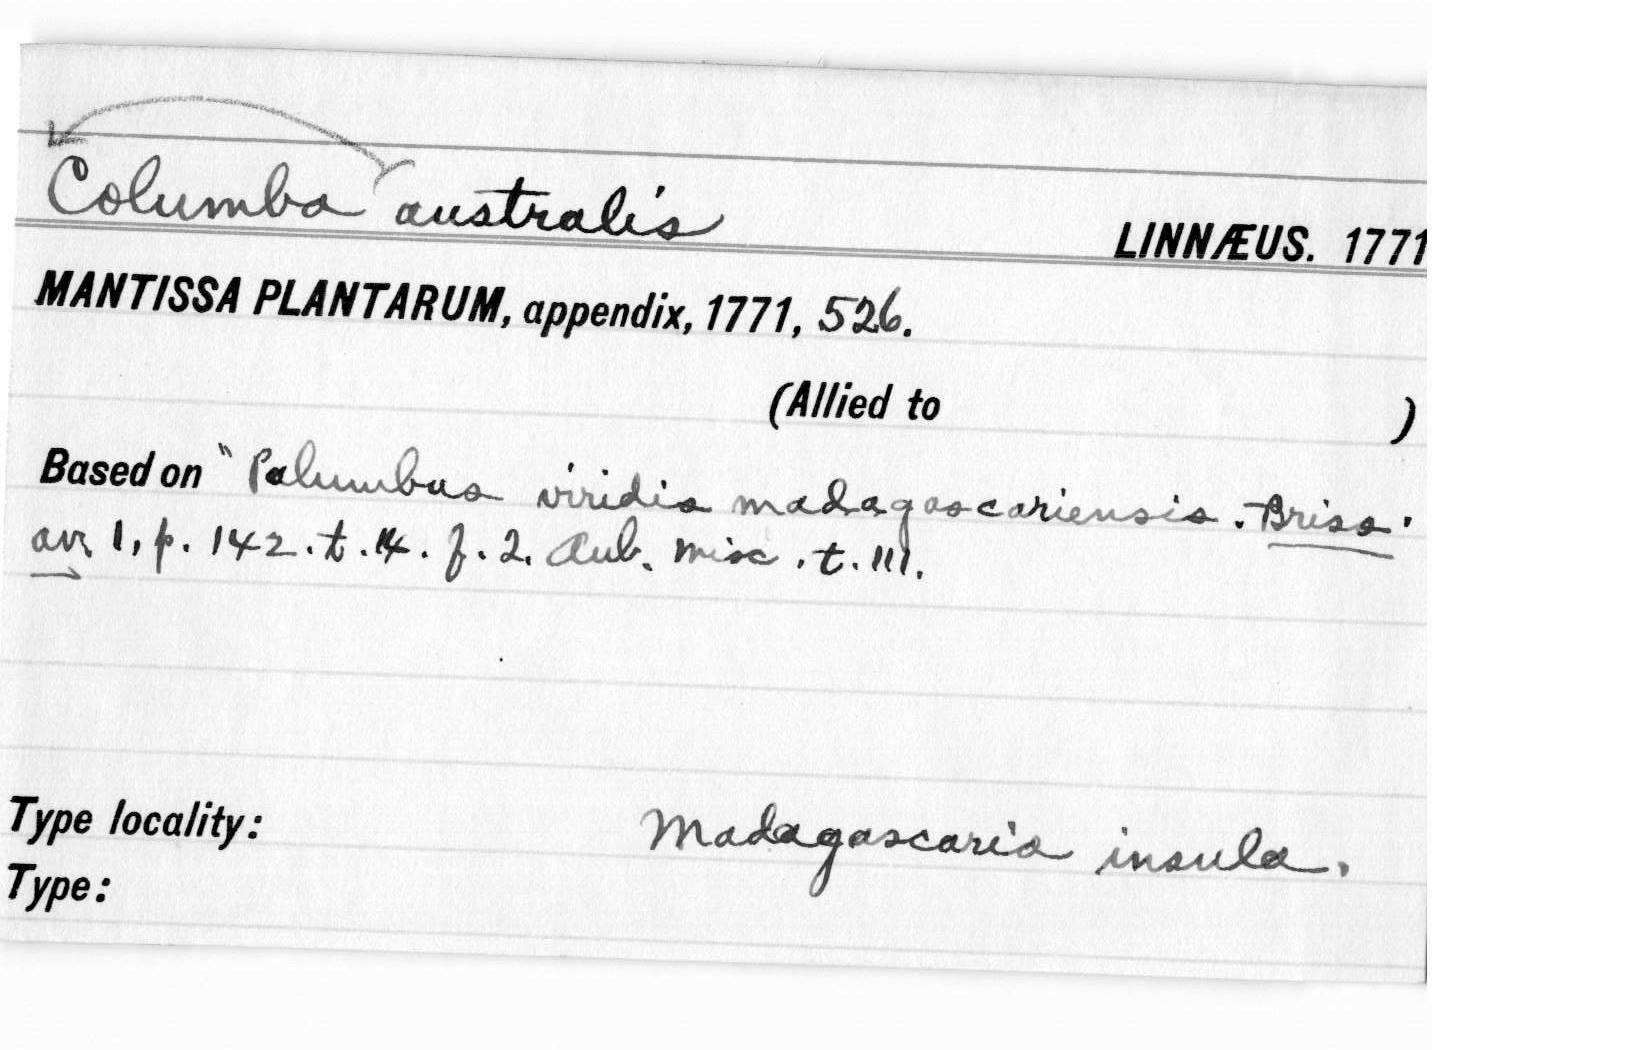 Columba australis
LINNÆUS. 1771
MANTISSA PLANTARUM, appendix, 1771, 526.
(Allied to )
Based on "Palumbus viridis madagascariensis. Briss.
av. 1, p. 142. t. 14. f. 2. Aub. misc. t. 111.
Type locality: Madagascaria insula.
Type: